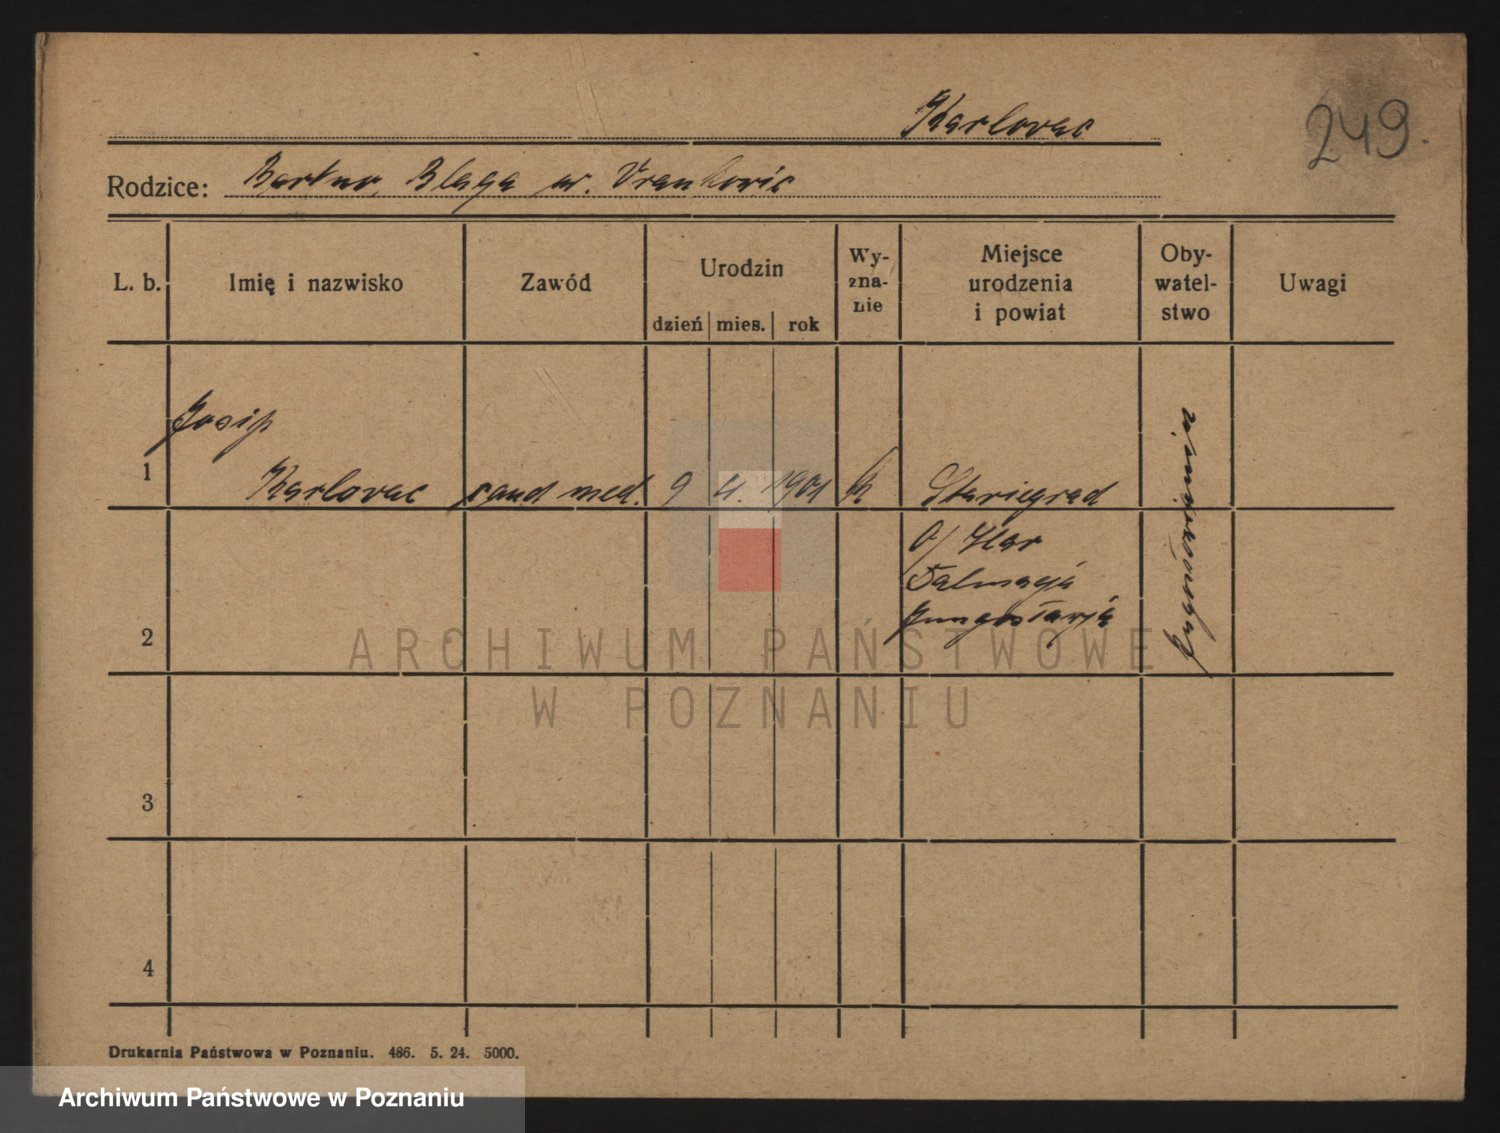 Karlovac
249.
Rodzice: Bartuo, Blaga ur. Vranković
L. b. Imię i nazwisko Zawód Urodzin Wy-zna-nie Miejsce urodzenia i powiat Oby-watel-stwo Uwagi
dzień mies. rok
Josip
1 Karlovac cand med. 9 4. 1901 k Starigrad
o/ Hvar
Dalmacja
2
3
4
Drukarnia Państwowa w Poznaniu. 486. 5. 24. 5000.
ARCHIWUM PAŃSTWOWE
W POZNANIU
Archiwum Państwowe w Poznaniu